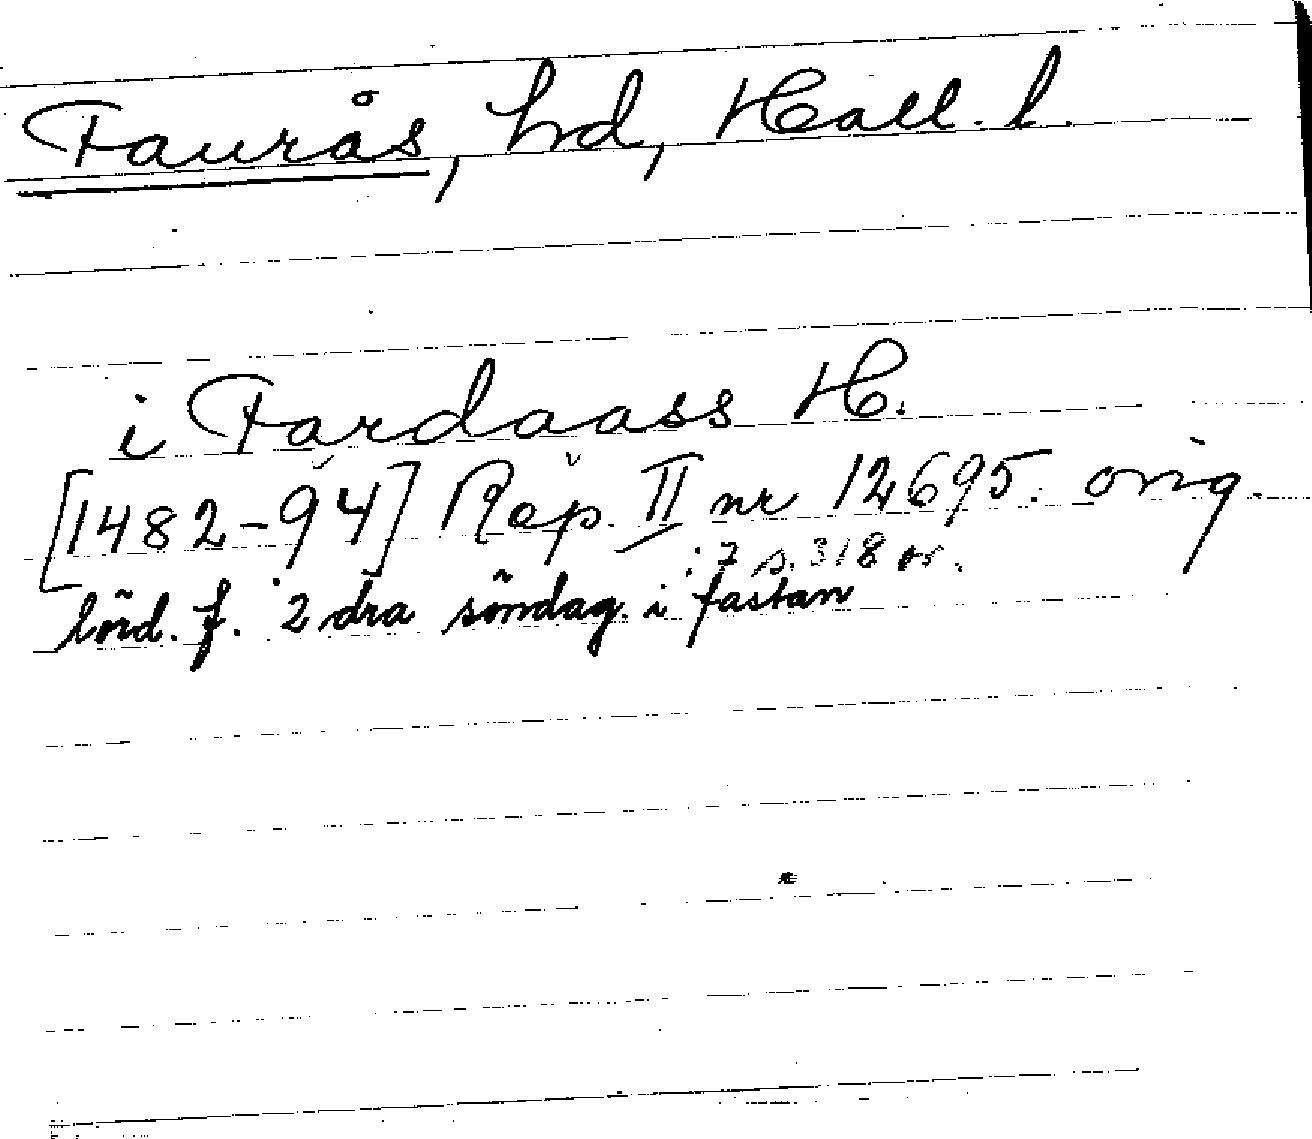 Faurås, hd, Hall. l.
i Fardaass H.
[1482-94] Rep. II nr 12695. orig.
: 7 s. 318 or.
lörd. f. 2 dra söndag. i fastan